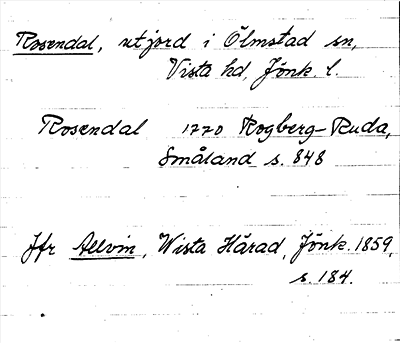 Rosendal, utjord i Ölmstad sn,
Vista hd, Jönk. l.
Rosendal 1770 Rogberg-Ruda,
Småland s. 848
Jfr Allvin, Wista Härad, Jönk. 1859,
s. 184.